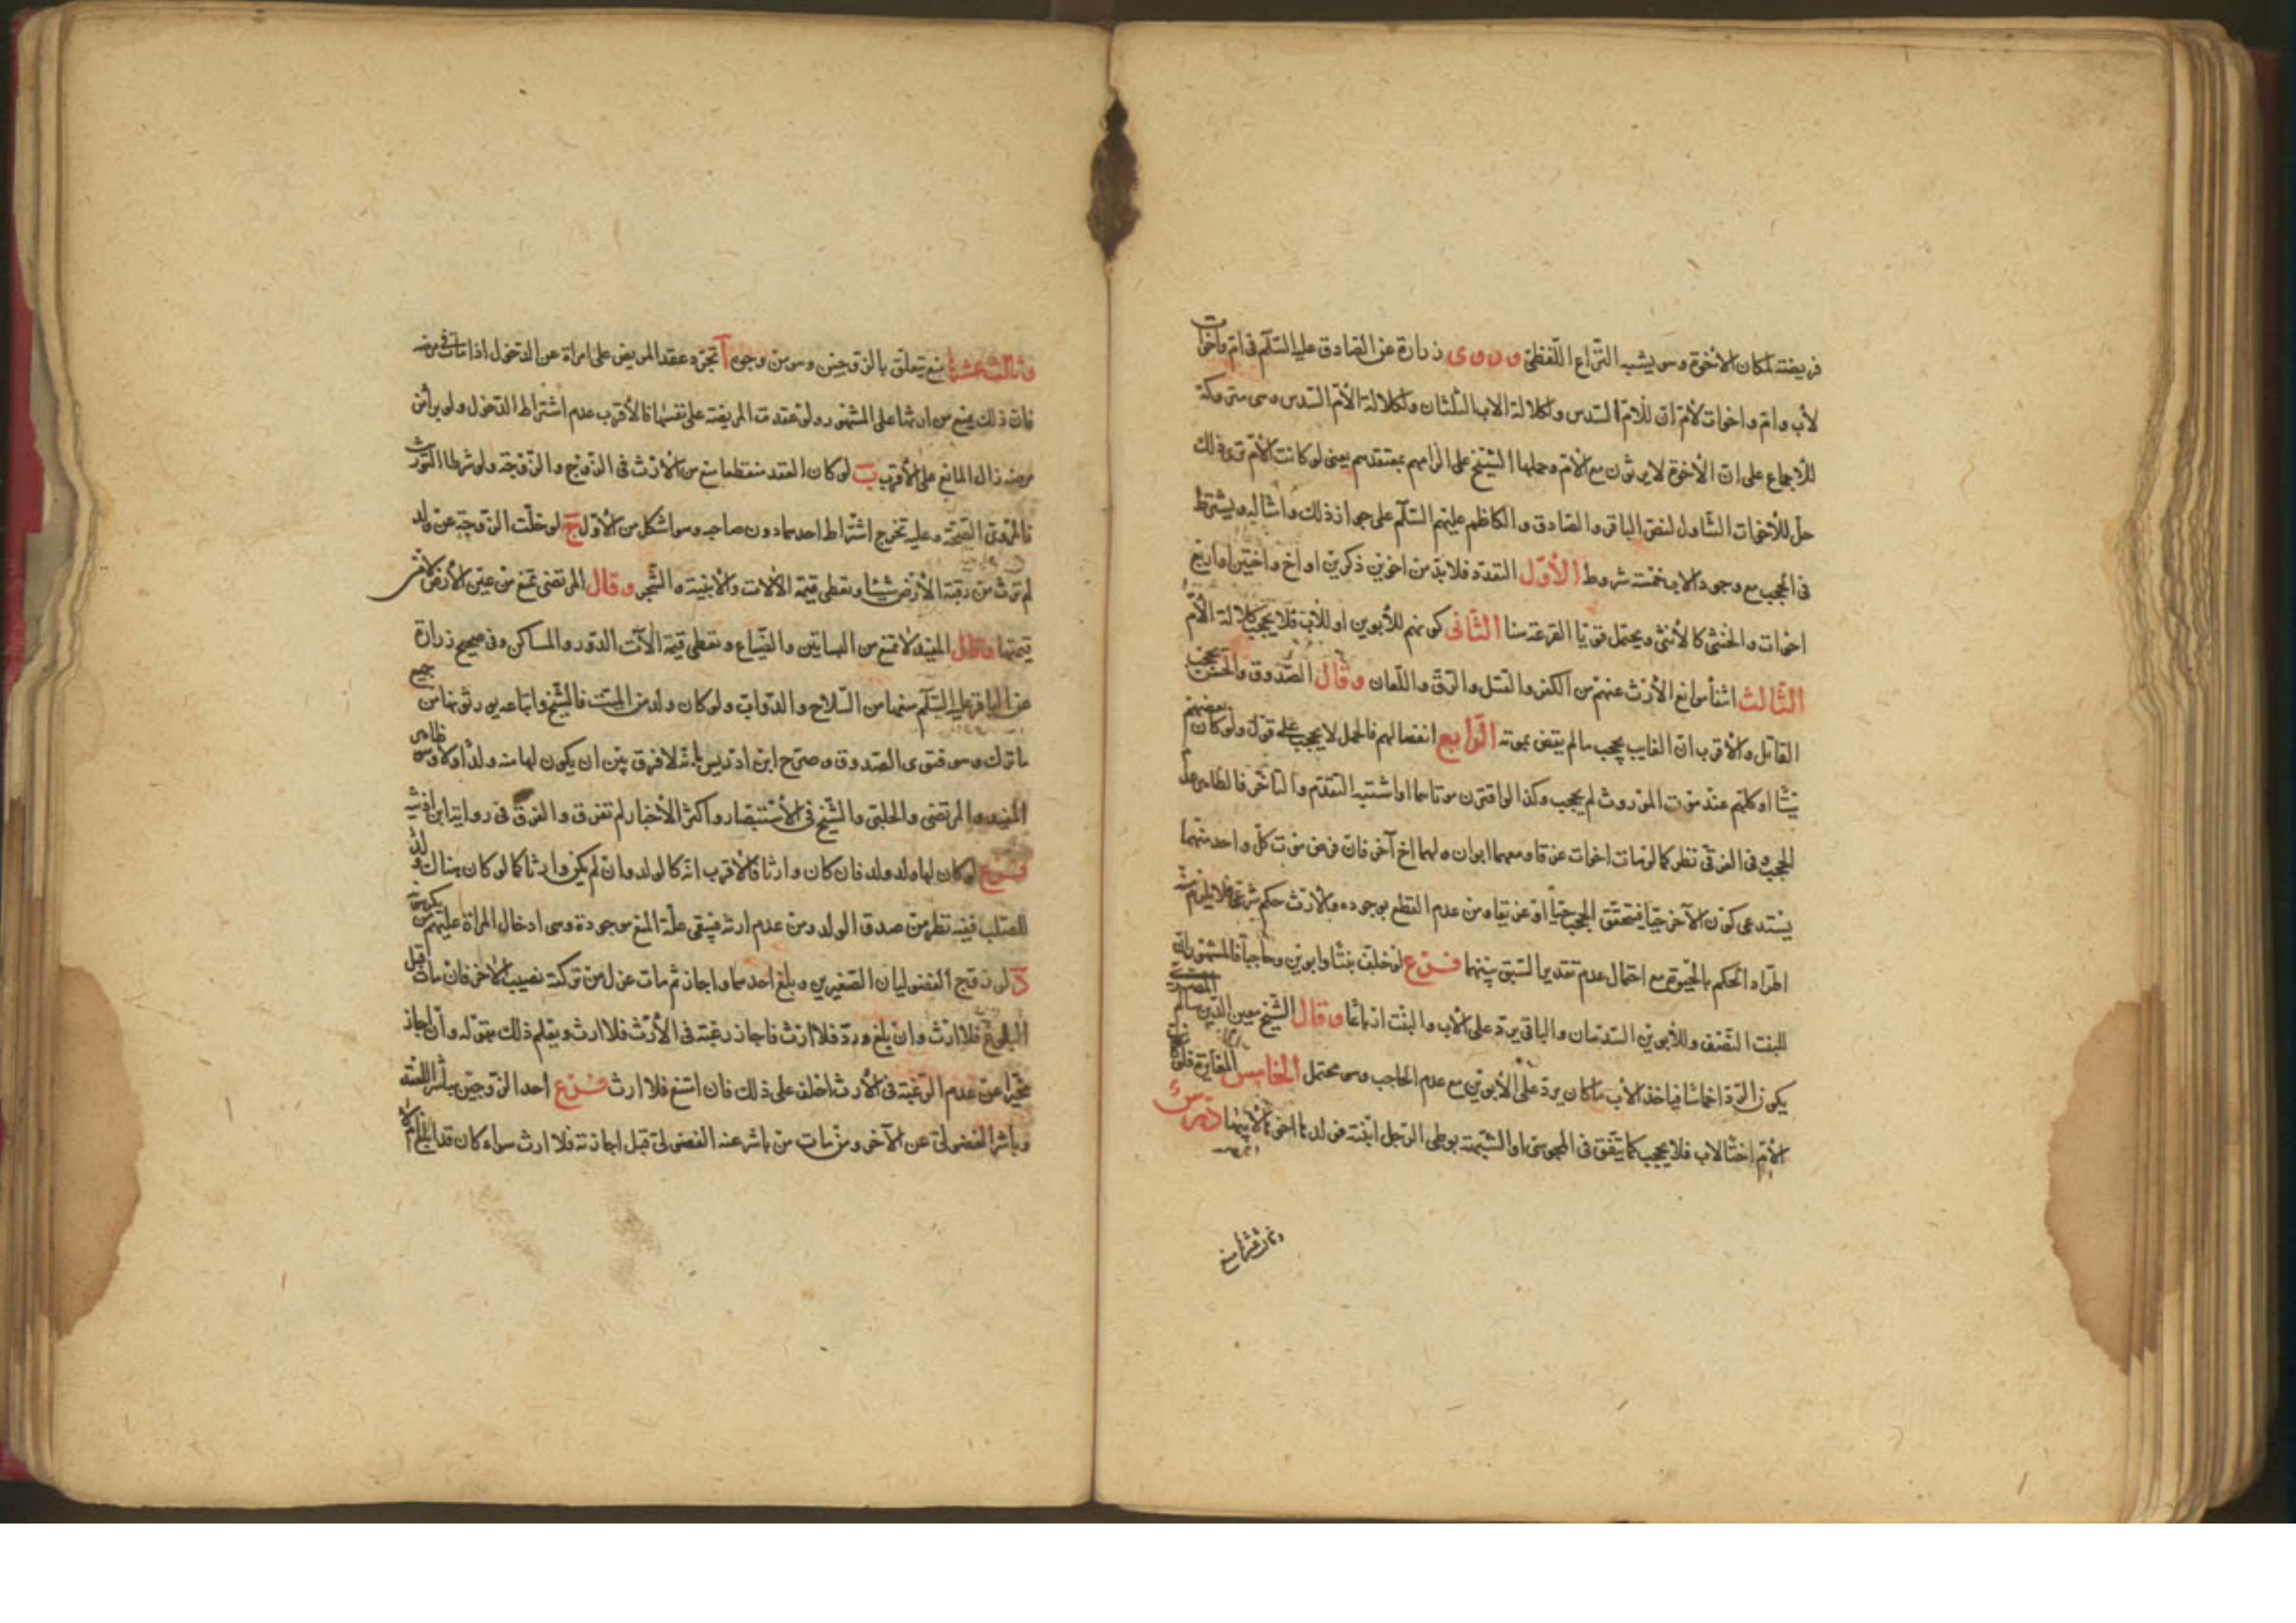 فريضته لمكان الأخوة وهو يشبه النزاع اللفظي وروى زرارة عن الصادق عليه السلام في ام واخوات
لأب وام واخوات لأم ان للام السدس ولكلالة الاب الثلثان ولكلالة الأم السدس وهي متروكة
للاجماع على ان الأخوة لا يرثون مع الام وحملها الشيخ على الزامهم بمعتقدهم يعني لو كانت الأم ترى ذلك
حل للأخوات التناول لنص الباقر والصادق والكاظم عليهم السلام على جواز ذلك وامثاله ويشترط
في الحجب مع وجود الاب خمسة شروط الأول التعدد فلا بد من اخوين ذكرين او اخ واختين او اربع
اخوات والخنثى كالأنثى ويحتمل قويا القرعة هنا الثاني كونهم للأبوين او للأب فلا يحجب كلالة الأم
الثالث انتفاء موانع الأرث عنهم من الكفر والقتل والرق واللعان وقال الصدوق والحسن يحجب
القاتل والأقرب ان الغايب يحجب ما لم يقض بموته الرابع انفصالهم فالحمل لا يحجب على قول ولو كان بعضهم
ميتا او كلهم عند موت الموروث لم يحجب وكذا لو اقترن موتاهما او اشتبه التقدم والتأخر فالظاهر عدم
الحجب وفي الغرقى نظر كما لو مات اخوات غرقا ومعهما ابوان ولهما اخ آخر فان فرض موت كل واحد منهما
يستدعي كون الآخر حيا فيتحقق الحجب حيا او غرقا ومن عدم القطع بوجوده والأرث حكم شرعي فلا يلزم منه
اطراد الحكم بالحيوة مع احتمال عدم تقدير السبق بينهما فرع لو خلف بنتا وابوين وحاجبا فالمشهور ان
للبنت النصف وللأبوين السدسان والباقي يرد على الأب والبنت ارباعا وقال الشيخ معين الدين سالم المصري
يكون الرد اخماسا فيأخذ الأب ما كان يرد على الأبوين مع عدم الحاجب وهو محتمل الخامس المغايرة فلو كانت
الأم اختا لاب فلا يحجب كما يتفق في المجوس او الشبهة بوطي الرجل ابنته فولدها اخوها لأبيها درس
وثالث عشرها
وثالث عشرها منع يتعلق بالزوجين وهو من وجوه آ تجرد عقد المريض على امرأة عن الدخول اذا مات في مرضه
فان ذلك يمنع من ارثها على المشهور ولو عقدت المريضة على نفسها فالأقرب عدم اشتراط الدخول ولو برأ من
مرضه زال المانع على الأقرب ب لو كان العقد منقطعا منع من الارث في الزوج والزوجة ولو شرطا التوارث
فالمروى الصحة وعليه تخرج اشتراط احدهما دون صاحبه وهو اشكل من الأول ج لو خلت الزوجة عن ولد
لم ترث من رقبة الأرض شيئا وتعطى قيمة الالات والأبنية والشجر وقال المرتضى تمنع من عين الأرض لا من
قيمتها وقال المفيد لا تمنع من البساتين والضياع وتعطى قيمة الآت الدور والمساكن وفي صحيح زرارة
عن الباقر عليه السلام منعها من السلاح والدواب ولو كان ولد من الميت فالشيخ واتباعه يورثونها من جميع
ما ترك وهو فتوى الصدوق وصرح ابن ادريس بانه لا فرق بين ان يكون لها منه ولد او لا وهو ظاهر
المفيد والمرتضى والحلبي والشيخ في الأستبصار واكثر الأخبار لم تفرق والفرق في رواية ابن اذينة
فرع لو كان لها ولد ولد فان كان وارثا فالأقرب انه كالولد وان لم يكن وارثا كما لو كان هناك ولد
للصلب ففيه نظر من صدق الولد ومن عدم ارثه فيبقى علة المنع موجودة وهي ادخال المرأة عليهم من يكرهونه
د لو زوج الفضوليان الصغيرين وبلغ احدهما واجاز ثم مات عزل من تركته نصيب الاخر فان مات قبل
البلوغ فلا ارث وان بلغ ورد فلا ارث فاجاز رغبته في الأرث فلا ارث ويعلم ذلك بقوله وان اجاز
مخبرا عن عدم الرغبة في الأرث احلف على ذلك فان امتنع فلا ارث فرع احد الزوجين مباشر العقد
وباشر الفضولي عن الآخر ومن مات من باشر عنه الفضولي قبل اجازته فلا ارث سواء كان قد ابلغ ام لا